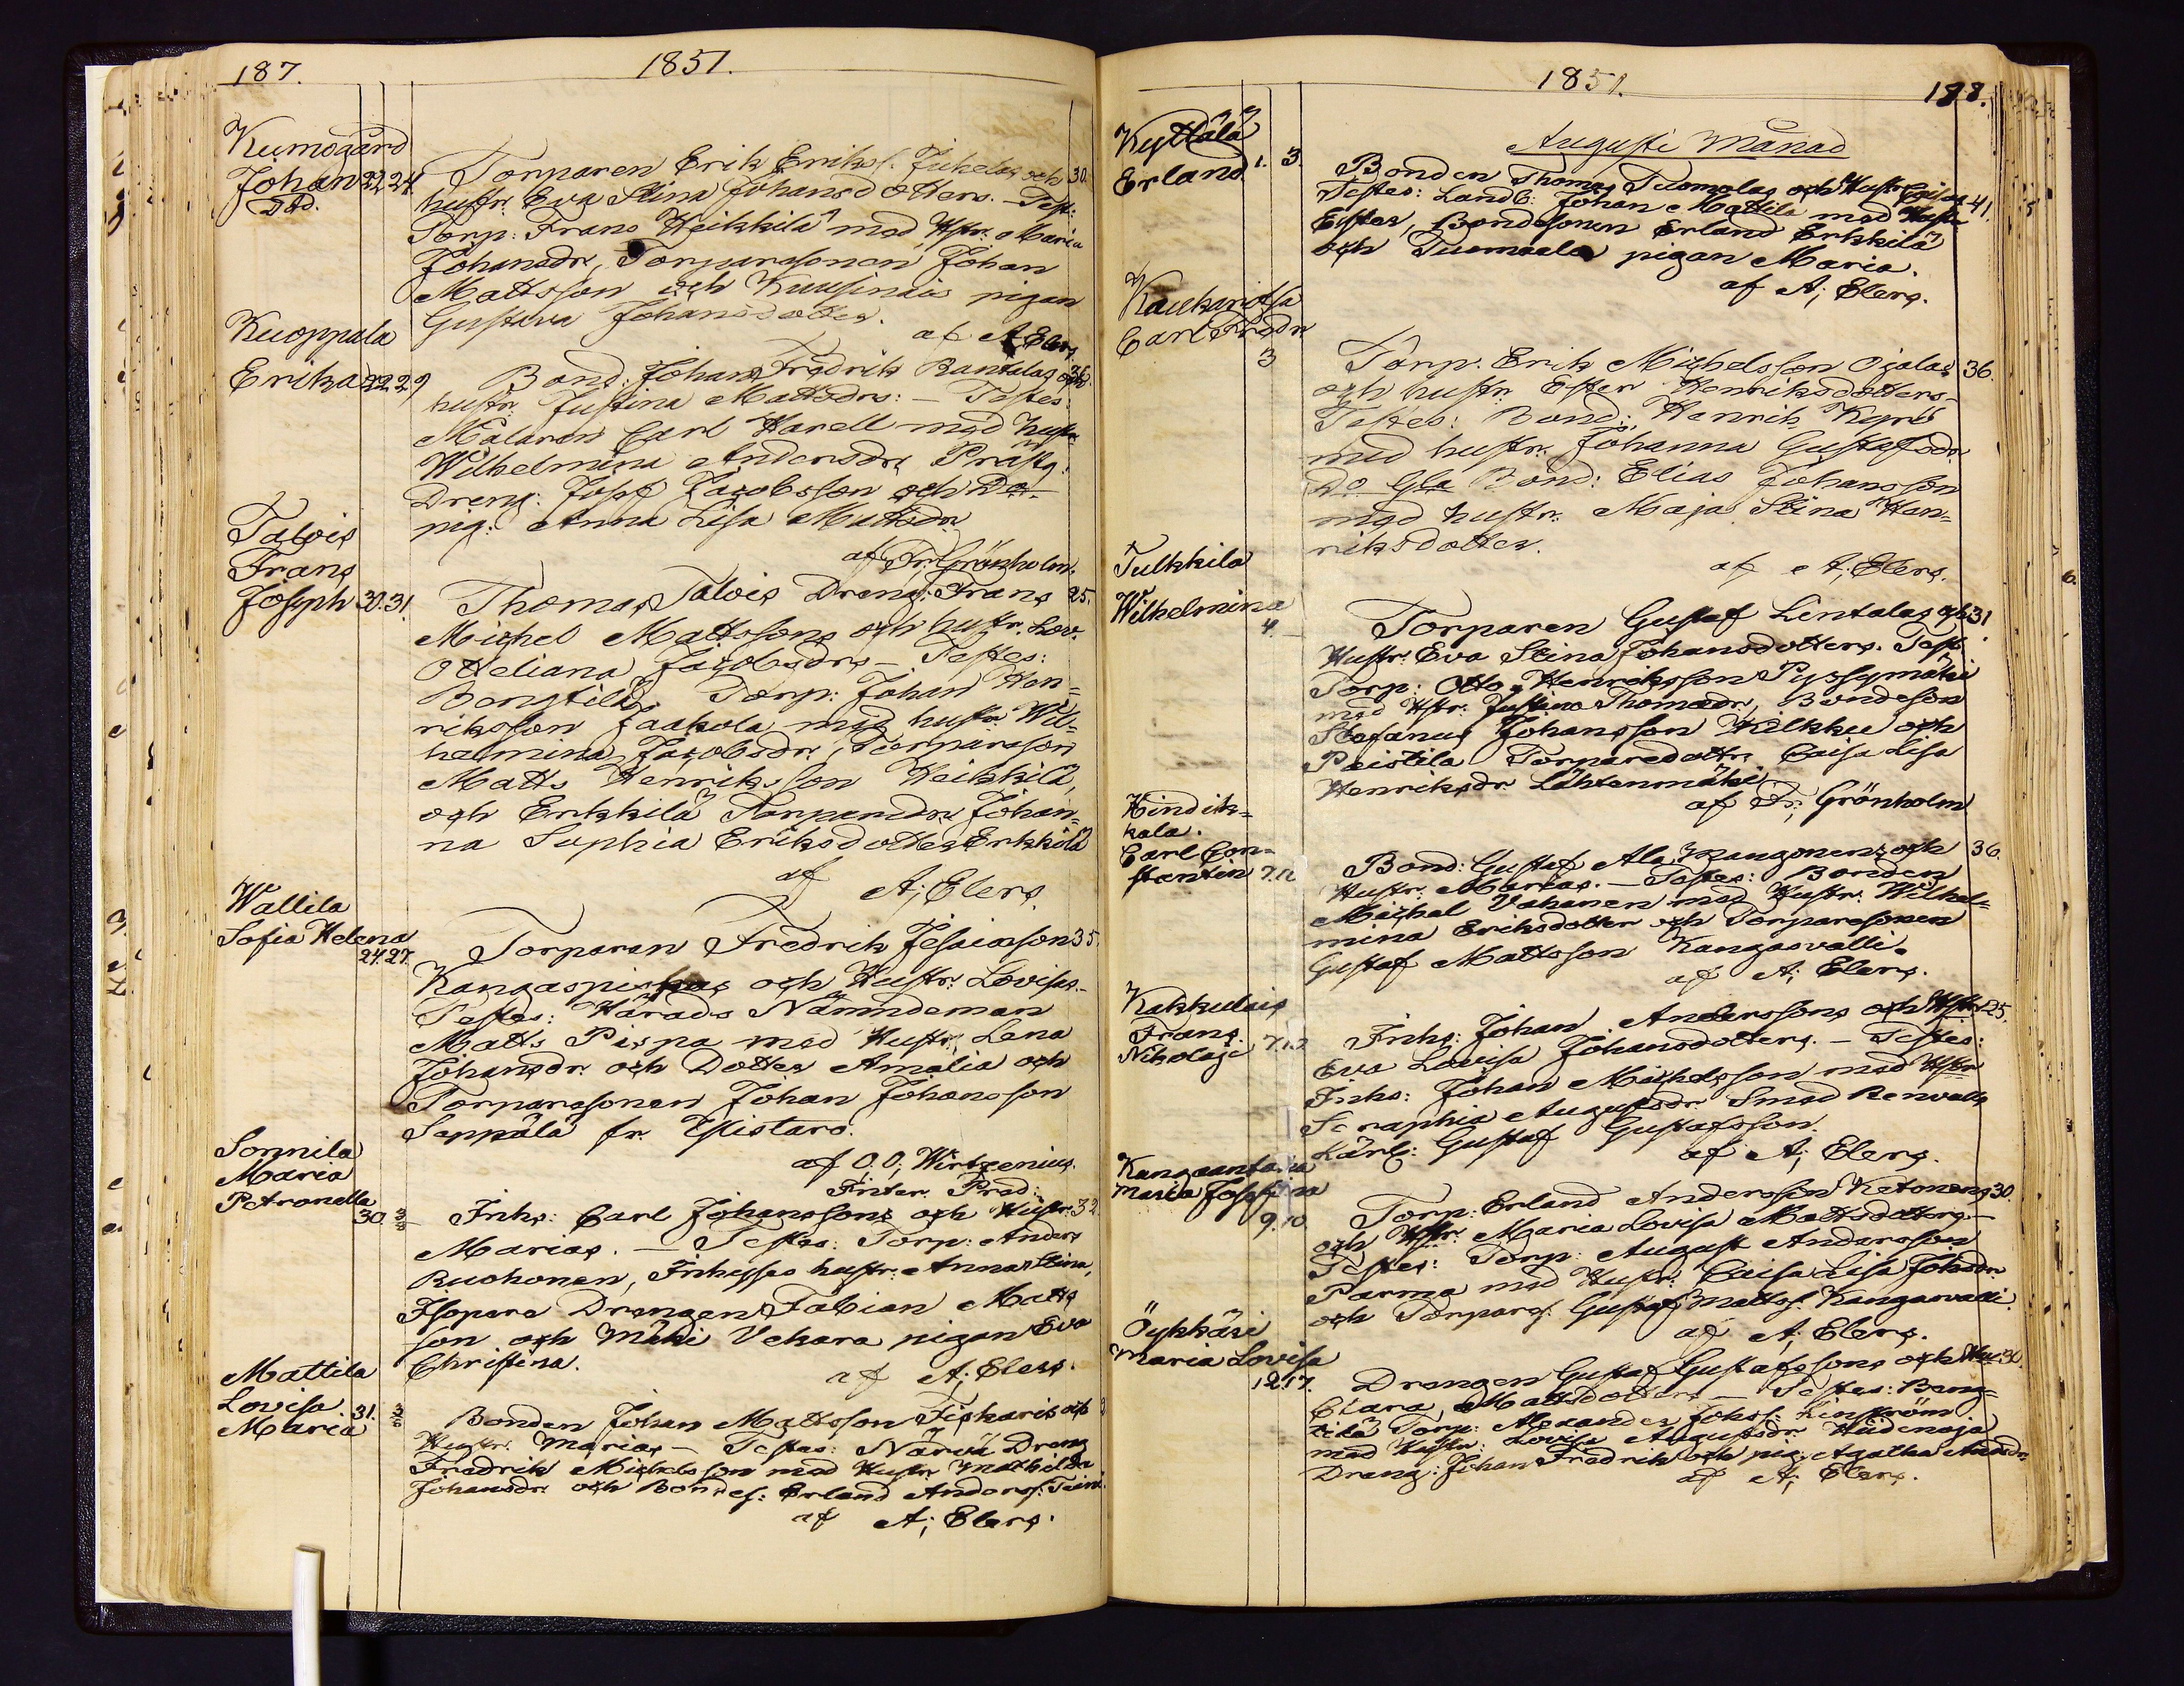 187.
1851.
Kumogård
Johan 22 24
Dld.
Torparen Erik Eriks. Juhelas och 30.
hustr. Eva Stina Johansdotters. - Test:
Torp: Frans Heikkilä med Hstr. Maria
Johansdr, Torparesonen Johan
Mattsson och Kuusinais pigan
Gustava Johansdotter.
af A Elers
Kuoppala
Erika 22 29
Bond: Johan Fredrik Rantalas och 36.
hustr. Justina Mattsdrs: - Testes:
Målaren Carl Harell med hustr
Wilhelmina Andersdr, Prästg:
Dreng: Josef Jacobsson och Do-
pig: Anna Lisa Mattsdr
af Fr. Grönholm.
Talvis
Frans
Joseph 30.31.
Thomas Talvis Dreng: Frans 25.
Michel Mattssons och hustr. Lov.
Otteliana Jacobsdrs - Testes:
Bengtilä Torp: Johan Hen=
riksson Jaakola med hustr Wil=
helmina Jacobsdr, Torpareson
Matts Henriksson Heikkilä,
och Erkkilä Torparedr. Johan=
na Sophia Eriksdotter Erkkilä
af A; Elers.
Wallila
Sofia Helena
24.27.
Torparen Fredrik Jesaiasson 35.
och Hustr. Lovisas.-
Testes: Härads Nämndeman
Matts Pispa med Hustr Lena
Johansdr. och Dotter Amalia och
Torparesonen Johan Johansson
Seppälä fr. Ylistaro.
af O, O; Wirtzenius.
Sonnila
Maria
Petronella
30.
Inhs: Carl Johanssons och Hustr. 32.
Marias. - Testes: Torp: Anders
Ruohonen, Inhyses hustr: Anna Stina,
Isopere Drengen Fabian Matts
son och Mäki Vekara pigan Eva
Christina.
af A; Elers.
Mattila
Lovisa
Maria 31.
Bonden Johan Mattsson
Hustr. Marias - Testes: Närvä Dreng
Fredrik Michelsson med Hustr Mathilda
Johansdr. och Bondes: Erland Anders:
af A; Elers.
1851.
188.
Augusti Månad
Kyttälä
Erland 1. 3.
Bonden Thomas Tuomolas och Hustr 41.
Testes: Landb: Johan Mattila med Hustr
Ester, Bondesonen Erland Erkkilä
och Tuomaala pigan Maria.
af A; Elers.
Kaukaritsa
Carl Fredr
3
Torp. Erik Michelsson Ojalas 36.
och hustr. Ester Henriksdotters-
Testes: Bond: Henrik Kyrö
med hustr. Johanna Gustafsdr
Do Gla Bond: Elias Johansson
med hustr. Maja Stina Hen=
riksdotter.
af A; Elers.
Tulkkila
Wilhelmina
4.
Torparen Gustaf Lintalas och 31.
Hustr. Eva Stina Johansdotters. Test.
Torp: Otto Henriksson Pyssymäki
med Hstr. Justina Thomasdr, Bondeson
Stefanus Johansson Kilkku och
Peistilä Torparedottr Caisa Lisa
Henriksdr Lähteenmäki
af Fr; Grönholm.
Hindik=
kala.
Carl Con=
stantin 7.10
Bond: Gustaf Ala och 36.
Hustr. Marias. - Testes: Bonden
Michel Vahanen med Hustr. Wilhel=
mina Eriksdotter och Torparesonen
Gustaf Mattsson Kangasvalli.
af A; Elers.
Kakkulais
Frans
Nikolaji 7.10
Inhs: Johan Anderssons och Hstr. 25.
Eva Lovisa Johansdotters. - Testes:
Inhs: Johan Michelsson med Hstr
Seraphia Augustsdr. Smed Renvalls
Lärl: Gustaf Gustafsson.
af A; Elers.
Kangaantaka
Maria Josefina
9.10
Torp: Erland Andersson Ketonens 30.
och Hstr. Maria Lovisa Mattsdotters.-
Testes: Torp: August Andersson
Parma med Hustr. Caisa Lisa Johsdr.
och Torpares: Gustaf Mattss. Kangasvalli.
af A; Elers.
Öykkäri
Maria Lovisa
12 17.
Drengen Gustaf Gustafssons och Hu 30.
Clara Mattsdotters - Testes: Beng=
tilä Torp: Alexander Johss: Linström
med Hustr: Lovisa Augustsdr Hiidenoja
Dreng: Johan Fredrik och pig: Agatha Andsdr.
af A; Elers.